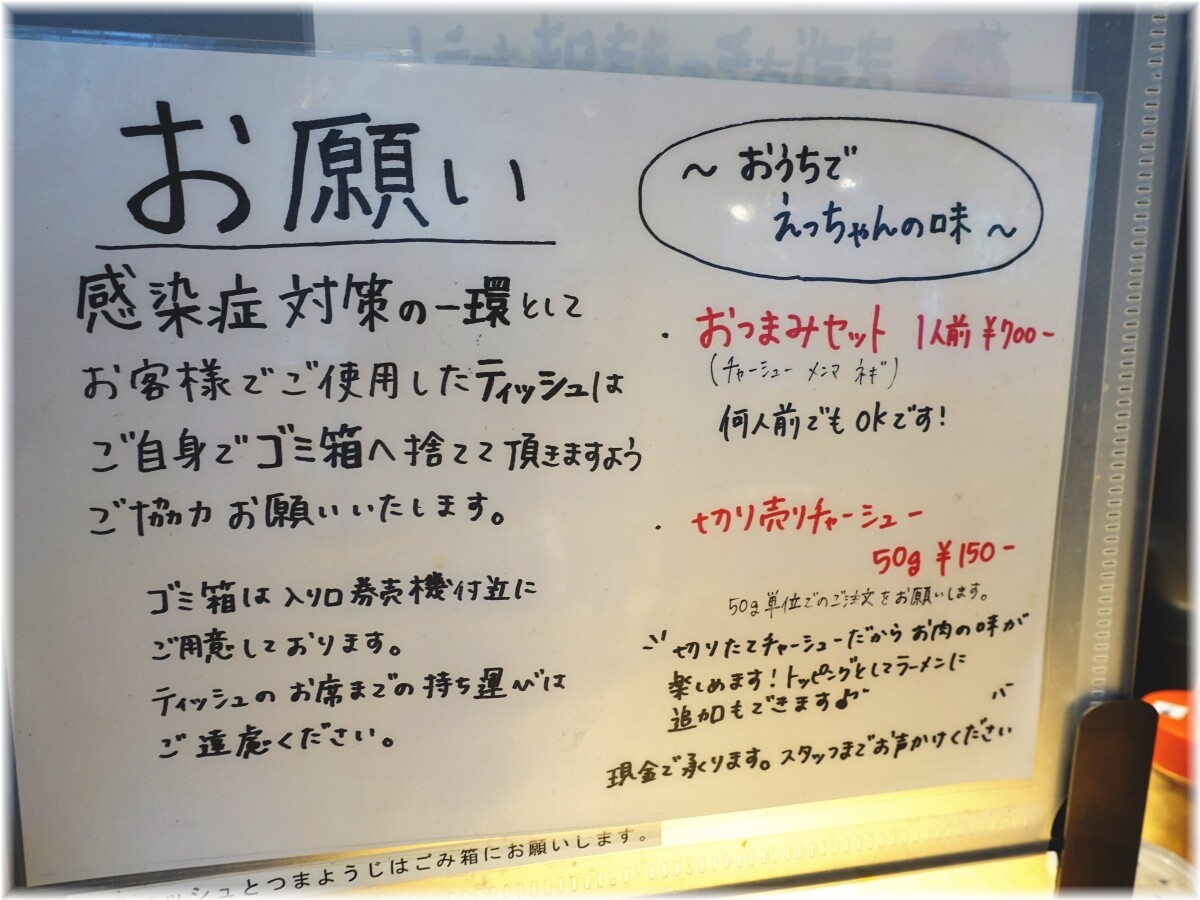 お願い
感染症対策の一環として
お客様でご使用したティッシュは
ご自身でゴミ箱へ捨てて頂きますよう
ご協力お願いいたします。
ゴミ箱は入り口券売機付近に
ご用意しております。
ティッシュのお席までの持ち運びは
ご遠慮ください。
～おうちで
えっちゃんの味～
・おつまみセット 1人前 ¥700-
(チャーシュー メンマ ネギ)
何人前でもOKです!
・切り売りチャーシュー
50g ¥150-
50g単位でのご注文をお願いします。
切りたてチャーシューだからお肉の味が
楽しめます!トッピングとしてラーメンに
追加もできます♪
現金で承ります。スタッフまでお声かけください
ッシュとつまようじはごみ箱にお願いします。